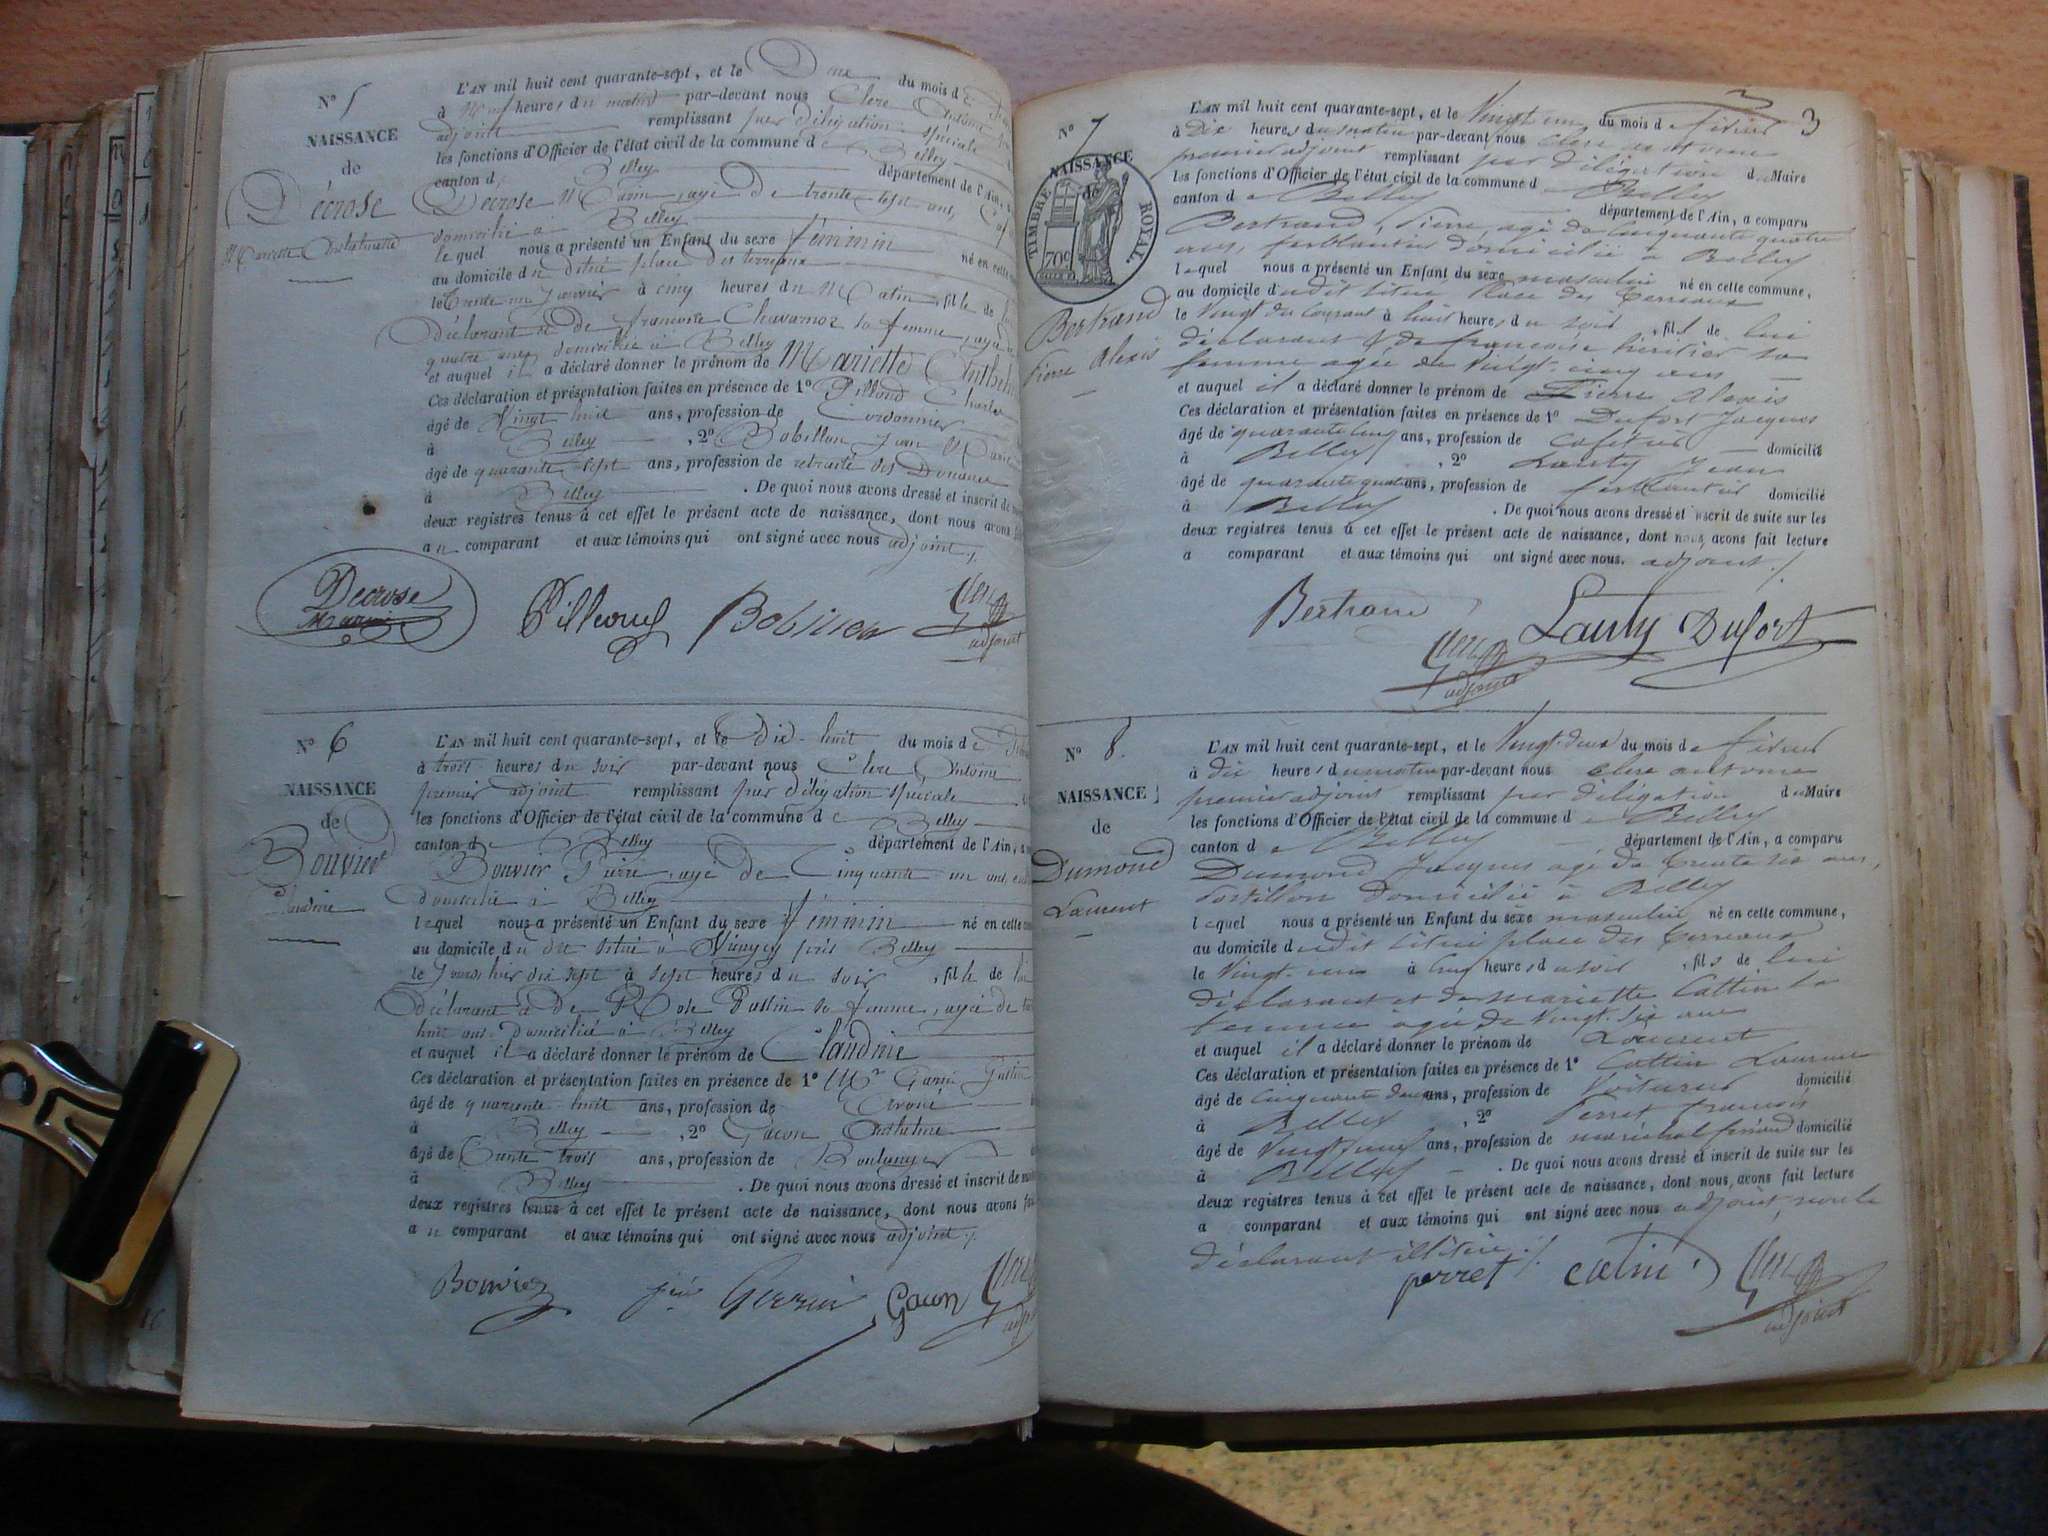 N° 5
NAISSANCE
de
Décrose
Mariette Anthelmette
L'AN mil huit cent quarante-sept, et le Deux du mois d
à neuf heures du matin par-devant nous Clerc Antoine
adjoint remplissant par délégation spéciale
les fonctions d'Officier de l'état civil de la commune de Belley
canton de Belley département de l'Ain,
Décrose Marin, âgé de trente sept ans,
domicilié à Belley
lequel nous a présenté un Enfant du sexe féminin
au domicile du dit place des terreaux né en cette
le trente un Janvier à cinq heures du Matin, fille de
Déclarant et de francoise Chavannoz sa femme, agée
quatre ans, domiciliée à Belley
et auquel il a déclaré donner le prénom de Mariette
Ces déclaration et présentation faites en présence de 1° Pilloud Charles
âgé de Vingt huit ans, profession de Cordonnier
à Belley, 2° Bobillon Jean Marie
âgé de quarante sept ans, profession de retraité des Douanes
à Belley. De quoi nous avons dressé et inscrit de
deux registres tenus à cet effet le présent acte de naissance, dont nous avons
au comparant et aux témoins qui ont signé avec nous adjoint ./.
Decrose
Marin
Pilloud Bobillon Clerc
adjoint
N° 6
NAISSANCE
de
Bouvier
Claudine
L'AN mil huit cent quarante-sept, et le Dix-huit du mois de
à trois heures du soir par-devant nous Clerc Antoine
premier adjoint remplissant par délégation spéciale
les fonctions d'Officier de l'état civil de la commune de Belley
canton de Belley département de l'Ain,
Bouvier Pierre, agé de Cinquante un ans,
domicilié à Belley
lequel nous a présenté un Enfant du sexe féminin né en cette
au domicile du dit situé à près Belley
le Jour d'hier dix sept à sept heures du soir, fille de lui
déclarant et de Rose sa femme, agée de
huit ans, domiciliée à Belley
et auquel il a déclaré donner le prénom de Claudine
Ces déclaration et présentation faites en présence de 1° Mr
âgé de quarante huit ans, profession de Avoué
à Belley, 2° Gacon Anthelme
âgé de Trente trois ans, profession de Boulanger
à Belley. De quoi nous avons dressé et inscrit de
deux registres tenus à cet effet le présent acte de naissance, dont nous avons
au comparant et aux témoins qui ont signé avec nous adjoint ./.
Bouvier Gacon Clerc
3
N° 7
NAISSANCE
de
TIMBRE ROYAL.
70c
Bertrand
Pierre Alexis
L'AN mil huit cent quarante-sept, et le Vingt un du mois de février
à dix heures du matin par-devant nous Clerc antoine
premier adjoint remplissant par délégation du Maire
les fonctions d'Officier de l'état civil de la commune de Belley
canton de Belley département de l'Ain, a comparu
Bertrand, Pierre, agé de Cinquante quatre
ans, ferblantier domicilié à Belley
lequel nous a présenté un Enfant du sexe masculin né en cette commune,
au domicile dudit situé Place des Terreaux
le Vingt du Courant à huit heures du soir, fils de lui
déclarant & de françoise héritier sa
femme agée de Vingt-cinq ans
et auquel il a déclaré donner le prénom de Pierre Alexis
Ces déclaration et présentation faites en présence de 1° Dufort Jacques
âgé de quarante cinq ans, profession de Cafetier domicilié
à Belley, 2° Lauty Jean
âgé de quarante quatre ans, profession de ferblantier domicilié
à Belley. De quoi nous avons dressé et inscrit de suite sur les
deux registres tenus à cet effet le présent acte de naissance, dont nous avons fait lecture
a comparant et aux témoins qui ont signé avec nous. adjoint ./.
Bertrand Lauty Dufort
Clerc
adjoint
N° 8.
NAISSANCE
de
Dumond
Laurent
L'AN mil huit cent quarante-sept, et le Vingt-deux du mois de février
à dix heures du matin par-devant nous Clerc antoine
premier adjoint remplissant par délégation du Maire
les fonctions d'Officier de l'état civil de la commune de Belley
canton de Belley département de l'Ain, a comparu
Dumond Jacques agé de trente six ans,
Postillon domicilié à Belley
lequel nous a présenté un Enfant du sexe masculin né en cette commune,
au domicile dudit situé place des Terreaux
le Vingt-un à Cinq heures du soir, fils de lui
déclarant et de Mariette Cattin sa
femme agée de Vingt-six ans
et auquel il a déclaré donner le prénom de Laurent
Ces déclaration et présentation faites en présence de 1° Cattin Laurent
âgé de Cinquante deux ans, profession de Voiturier domicilié
à Belley, 2° Perret françois
âgé de Vingt neuf ans, profession de maréchal ferrand domicilié
à Belley. De quoi nous avons dressé et inscrit de suite sur les
deux registres tenus à cet effet le présent acte de naissance, dont nous avons fait lecture
a comparant et aux témoins qui ont signé avec nous adjoint, non le
déclarant illitéré ./.
perret catin Clerc
adjoint